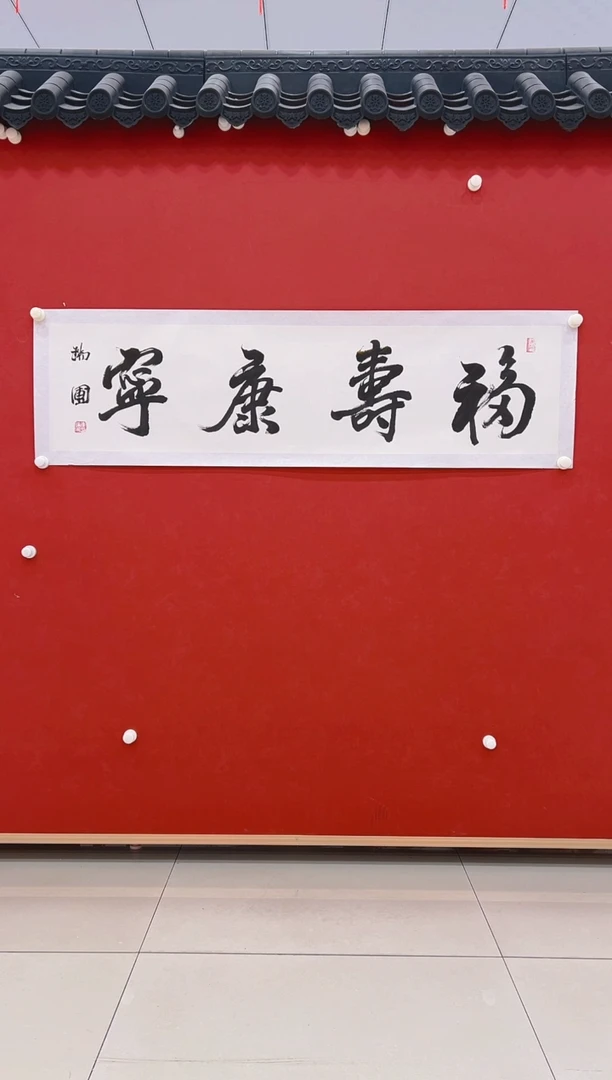 福壽康寧
瑞圃